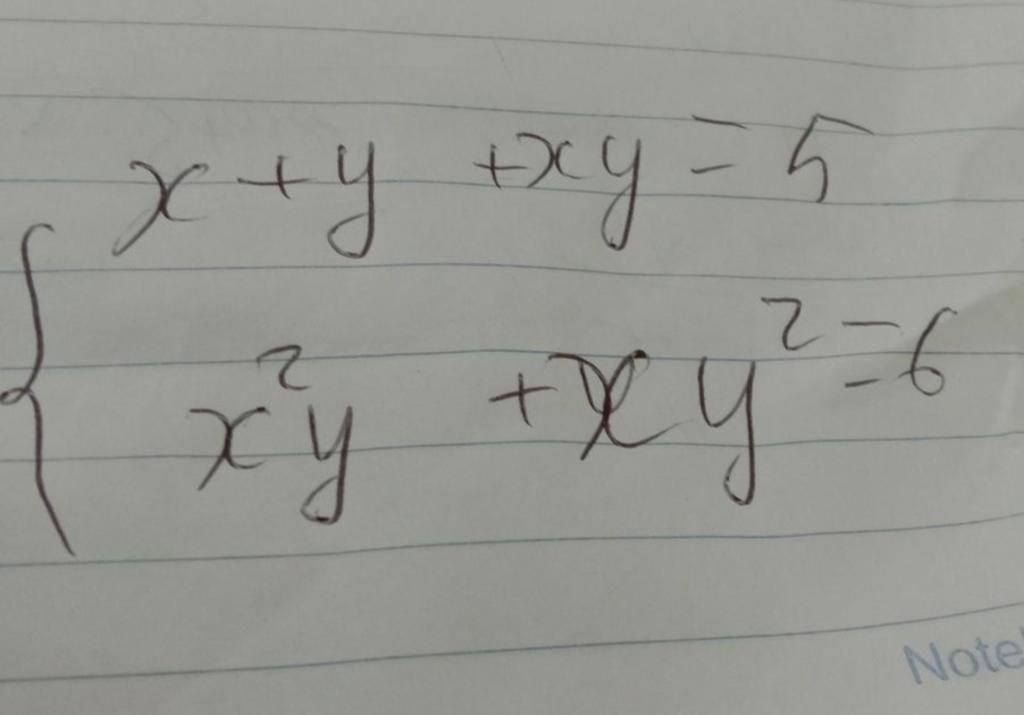 x + y + xy = 5
x²y + xy² = 6
Note